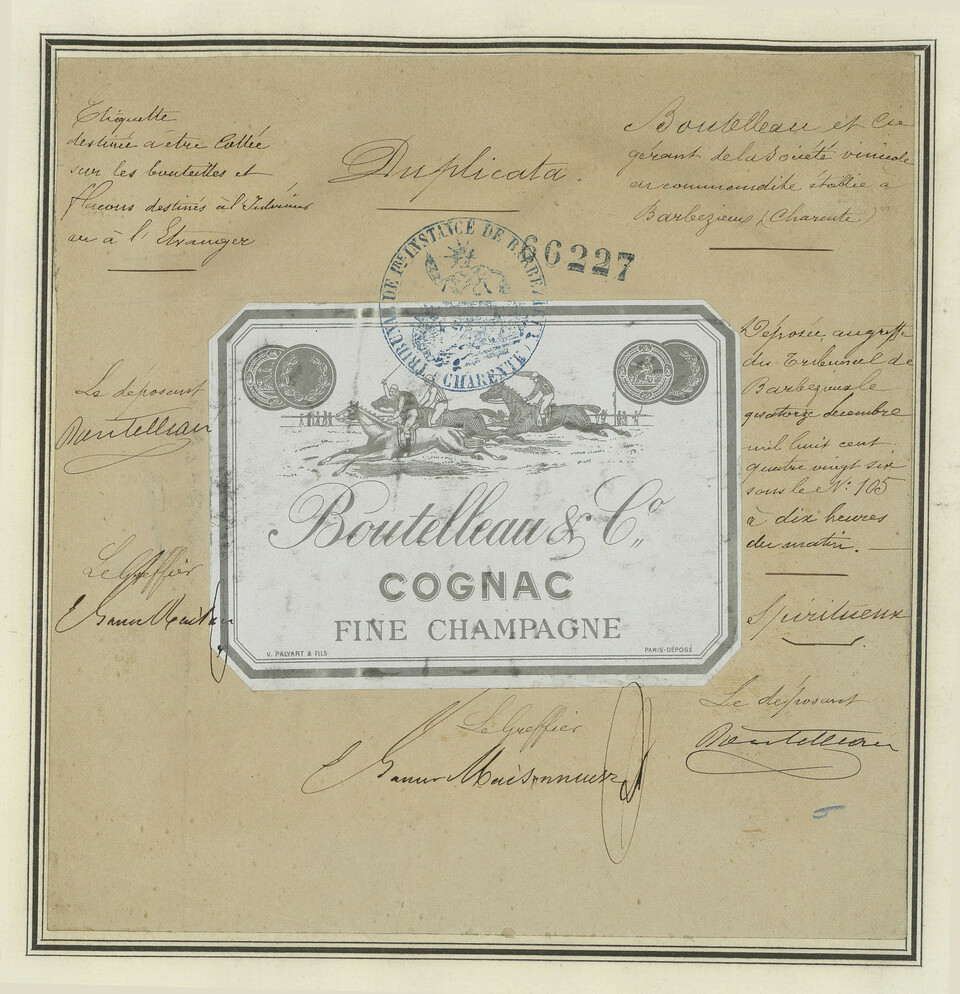 Etiquette
destinée à être Collée
sur les bouteilles et
flacons destinés à l'Intérieur
ou à l'Etranger
Duplicata.
Boutelleau et Cie
gérant de la Société vinicole
en commandite établie à
Barbezieux (Charente)
TRIBUNAL DE 1RE INSTANCE DE BARBEZIEUX
CHARENTE
66227
Le déposant
Boutelleau
Le Greffier
Déposée, au greffe
du Tribunal de
Barbezieux le
quatorze décembre
mil huit cent
quatre vingt six
sous le No. 105
à dix heures
du matin.
Spiritueux
Boutelleau & Co
COGNAC
FINE CHAMPAGNE
V. PALYART & FILS
PARIS-DÉPOSÉ
Le Greffier
Le déposant
Boutelleau